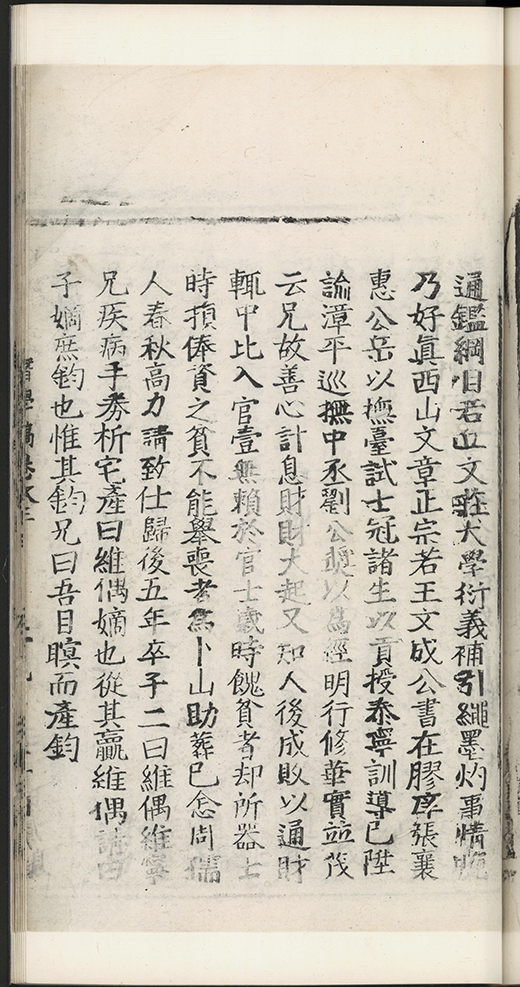 通鑑綱目若丘文莊大學衍義補引繩墨灼事情晚
乃好眞西山文章正宗若王文成公書在膠庠張襄
惠公岳以撫臺試士冠諸生以貢授泰寧訓導已陞
諭漳平巡撫中丞劉公奬以爲經明行修華實並茂
云兄故善心計息財財大起又知人後成敗以通財
輒中比入官壹無賴於官士歲時餽貧者却所器士
時損俸資之貧不能舉喪者爲卜山助葬已念周孺
人春秋高力請致仕歸後五年卒子二曰維偶維寧
兄疾病手劵析宅產曰維偶嫡也從其贏維偶請曰
子嫡庶鈞也惟其鈞兄曰吾目瞑而產鈞
學稿卷